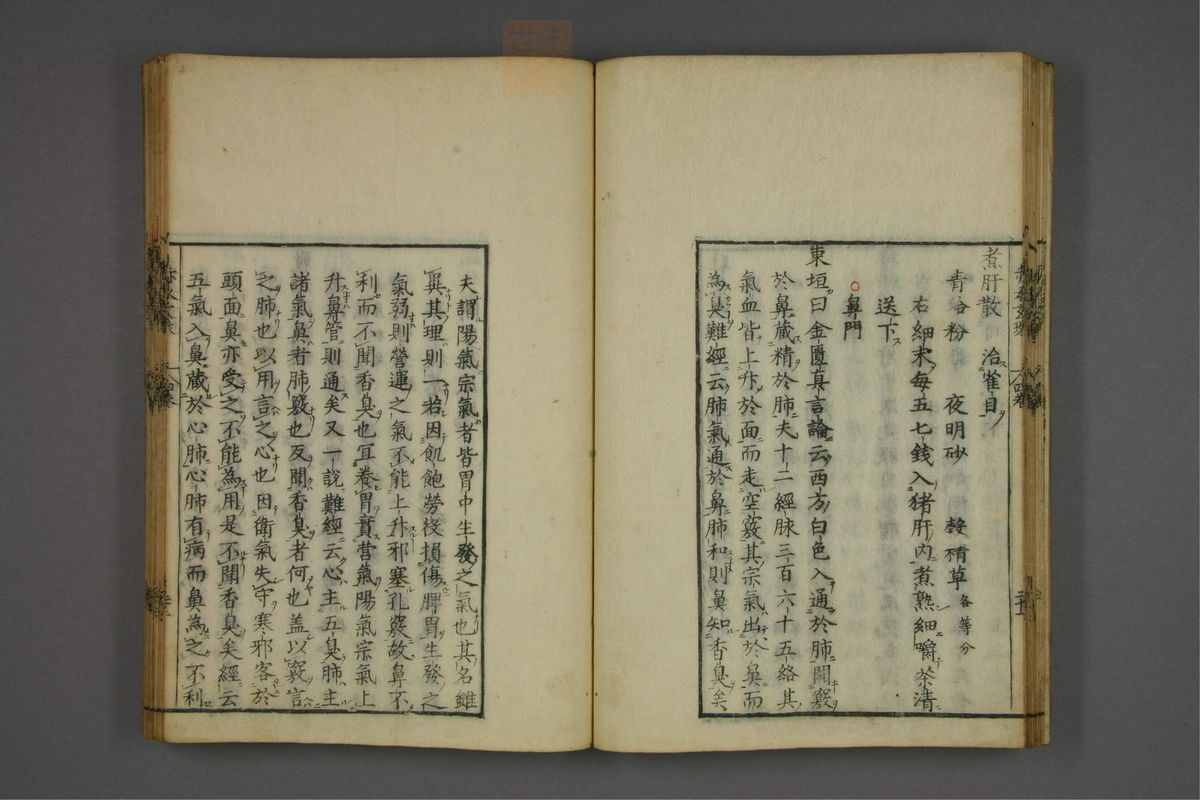 煮肝散　治雀目
青蛤粉　夜明砂　穀精草各等分
右細末每五七錢入猪肝內煮熟細嚼茶清
送下
鼻門
東垣曰金匱真言論云西方白色入通於肺開竅
於鼻藏精於肺夫十二經脉三百六十五絡其
氣血皆上升於面而走空竅其宗氣出於鼻而
為臭難經云肺氣通於鼻肺和則鼻知香臭矣
夫謂陽氣宗氣者皆胃中生發之氣也其名雖
異其理則一若因飢飽勞役損傷脾胃生發之
氣弱則營運之氣不能上升邪塞孔竅故鼻不
利而不聞香臭也宜養胃實营氣陽氣宗氣上
升鼻管則通矣又一說難經云心主五臭肺主
諸氣鼻者肺竅也反聞香臭者何也盖以竅言
之肺也以用言之心也因衛氣失守寒邪客於
頭面鼻亦受之不能為用是不聞香臭矣經云
五氣入鼻藏於心肺心肺有病而鼻為之不利